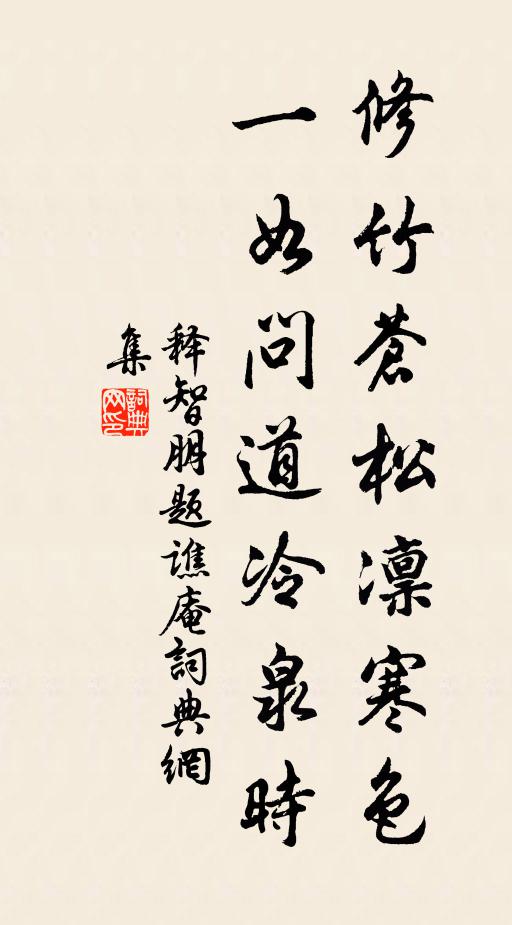 修竹蒼松凛寒色
一如問道冷泉時
释智朋題譙庵詞典網
集
詞典網印